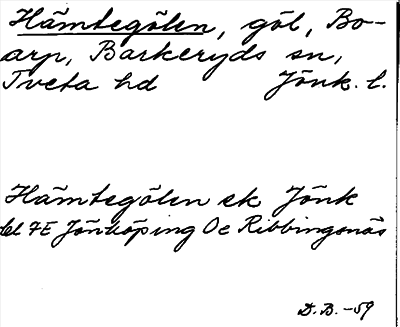 Hämtegölen, göl, Bo-
arp, Barkeryds sn,
Tveta hd Jönk. l.
Hämtegölen ek Jönk
bl 7E Jönköping Oc Ribbingsnäs
D. B. -59